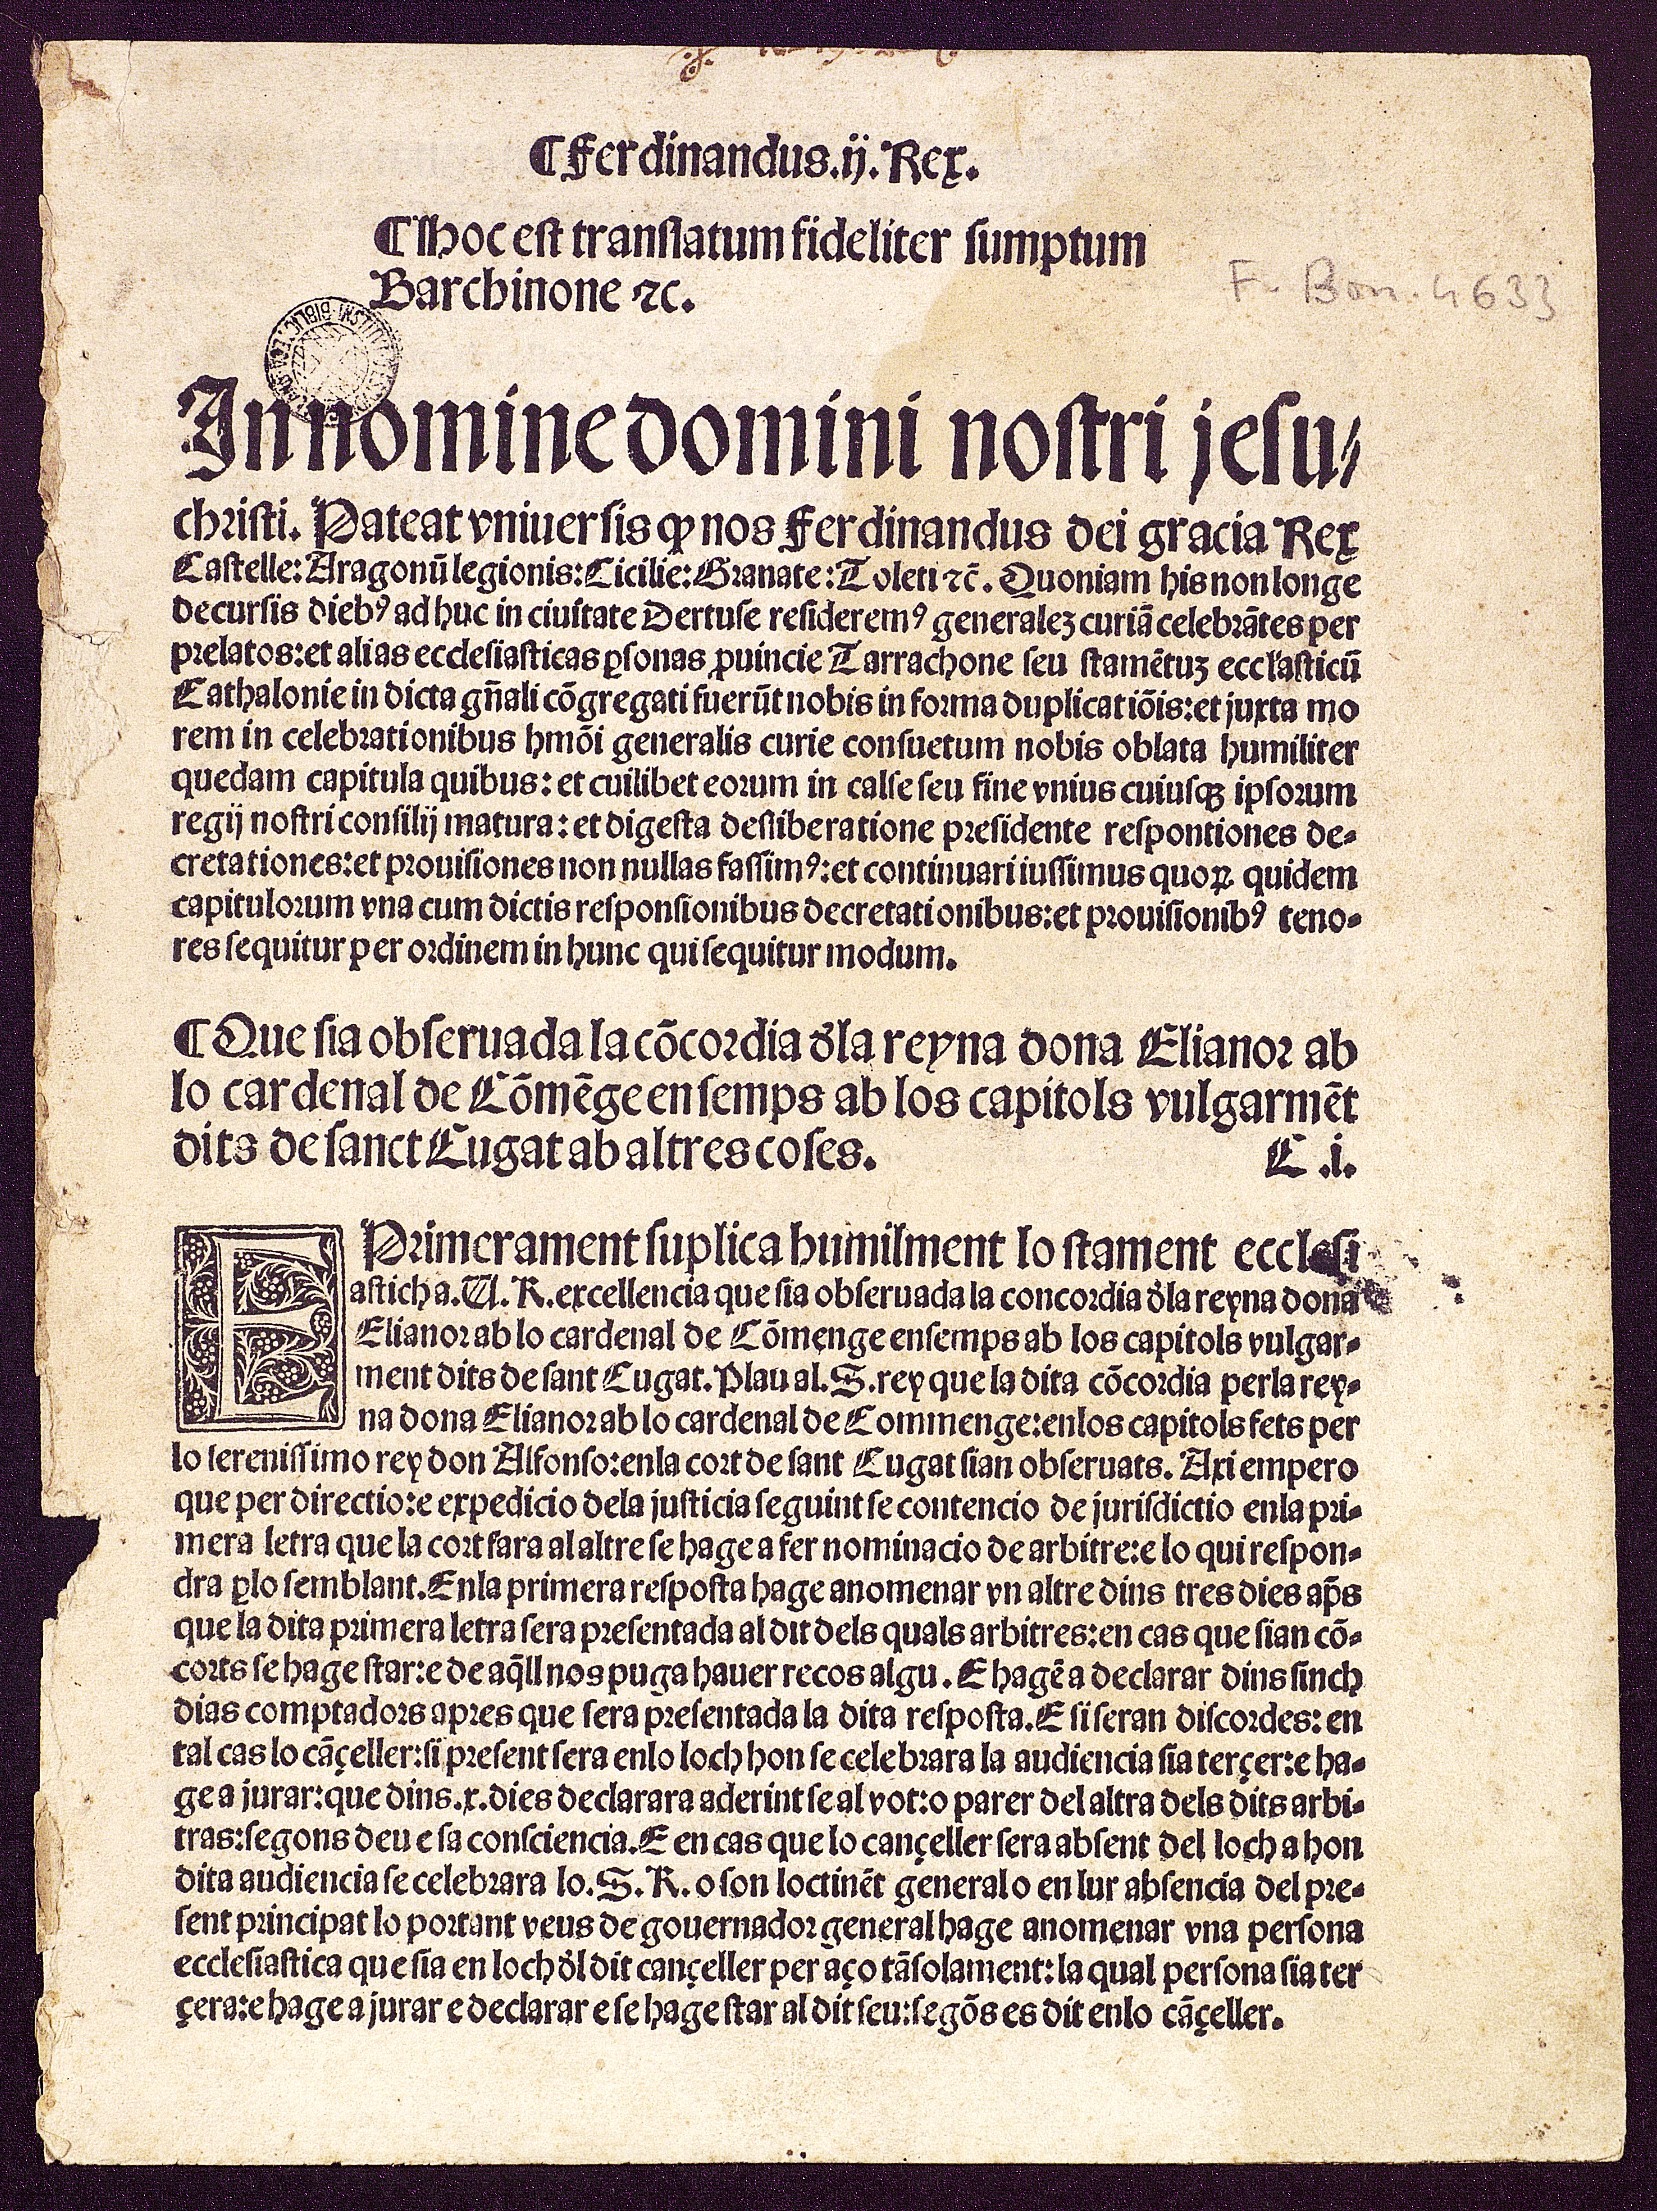 ¶ Ferdinandus .ij. Rex.
¶ Hoc est translatum fideliter sumptum
Barchinone ⁊c.
F. Bon. 4633
In nomine domini nostri jesu⸗
christi. Pateat vniuersis ꝙ nos Ferdinandus dei gracia Rex
Castelle: Aragonū legionis: Cicilie: Granate: Toleti ⁊c̄. Quoniam his non longe
decursis diebꝰ ad huc in ciuitate Dertuse residere mꝰ generaleȝ curiā celebrātes per
prelatos: et alias ecclesiasticas ꝑsonas ꝓuincie Tarrachone seu stamētuȝ eccl'asticū
Cathalonie in dicta gn̄ali cōgregati fuerūt nobis in forma duplicatiōis: et juxta mo
rem in celebrationibus hmōi generalis curie consuetum nobis oblata humiliter
quedam capitula quibus: et cuilibet eorum in calse seu fine vnius cuiusqȝ ipsorum
regij nostri consilij matura: et digesta desliberatione presidente respontiones de⸗
cretationes: et prouisiones non nullas fassimꝰ: et continuari iussimus quoꝝ quidem
capitulorum vna cum dictis responsionibus decretationibus: et prouisionibꝰ teno⸗
res sequitur per ordinem in hunc qui sequitur modum.
¶ Que sia obseruada la cōcordia d'la reyna dona Elianor ab
lo cardenal de Cōmēge ensemps ab los capitols vulgarmēt
dits de sanct Cugat ab altres coses. C .i.
E Primerament suplica humilment lo stament ecclesi
astich a. V. R. excellencia que sia obseruada la concordia d'la reyna dona
Elianor ab lo cardenal de Cōmenge ensemps ab los capitols vulgar⸗
ment dits de sant Cugat. Plau al. S. rey que la dita cōcordia per la rey⸗
na dona Elianor ab lo cardenal de Commenge: en los capitols fets per
lo serenissimo rey don Alfonso: en la cort de sant Cugat sian obseruats. Axi empero
que per directio: e expedicio de la justicia seguint se contencio de jurisdictio en la pri⸗
mera letra que la cort fara al altre se hage a fer nominacio de arbitre: e lo qui respon⸗
dra ꝑ lo semblant. En la primera resposta hage anomenar vn altre dins tres dies ap̄s
que la dita primera letra sera presentada al dit dels quals arbitres: en cas que sian cō⸗
corts se hage star: e de aq̄ll nos puga hauer recos algu. E hagē a declarar dins sinch
dias comptadors apres que sera presentada la dita resposta. E si seran discordes: en
tal cas lo cāçeller: si present sera en lo loch hon se celebrara la audiencia sia terçer: e ha⸗
ge a jurar: que dins .x. dies declarara aderint se al vot: o parer del altra dels dits arbi⸗
tras: segons deu e sa consciencia. E en cas que lo cançeller sera absent del loch a hon
dita audiencia se celebrara lo. S. R. o son loctinēt general o en lur absencia del pre⸗
sent principat lo portant veus de gouernador general hage anomenar vna persona
ecclesiastica que sia en loch d'l dit cançeller per aço tāsolament: la qual persona sia ter
çera: e hage a jurar e declarar e se hage star al dit seu: segōs es dit en lo cāçeller.